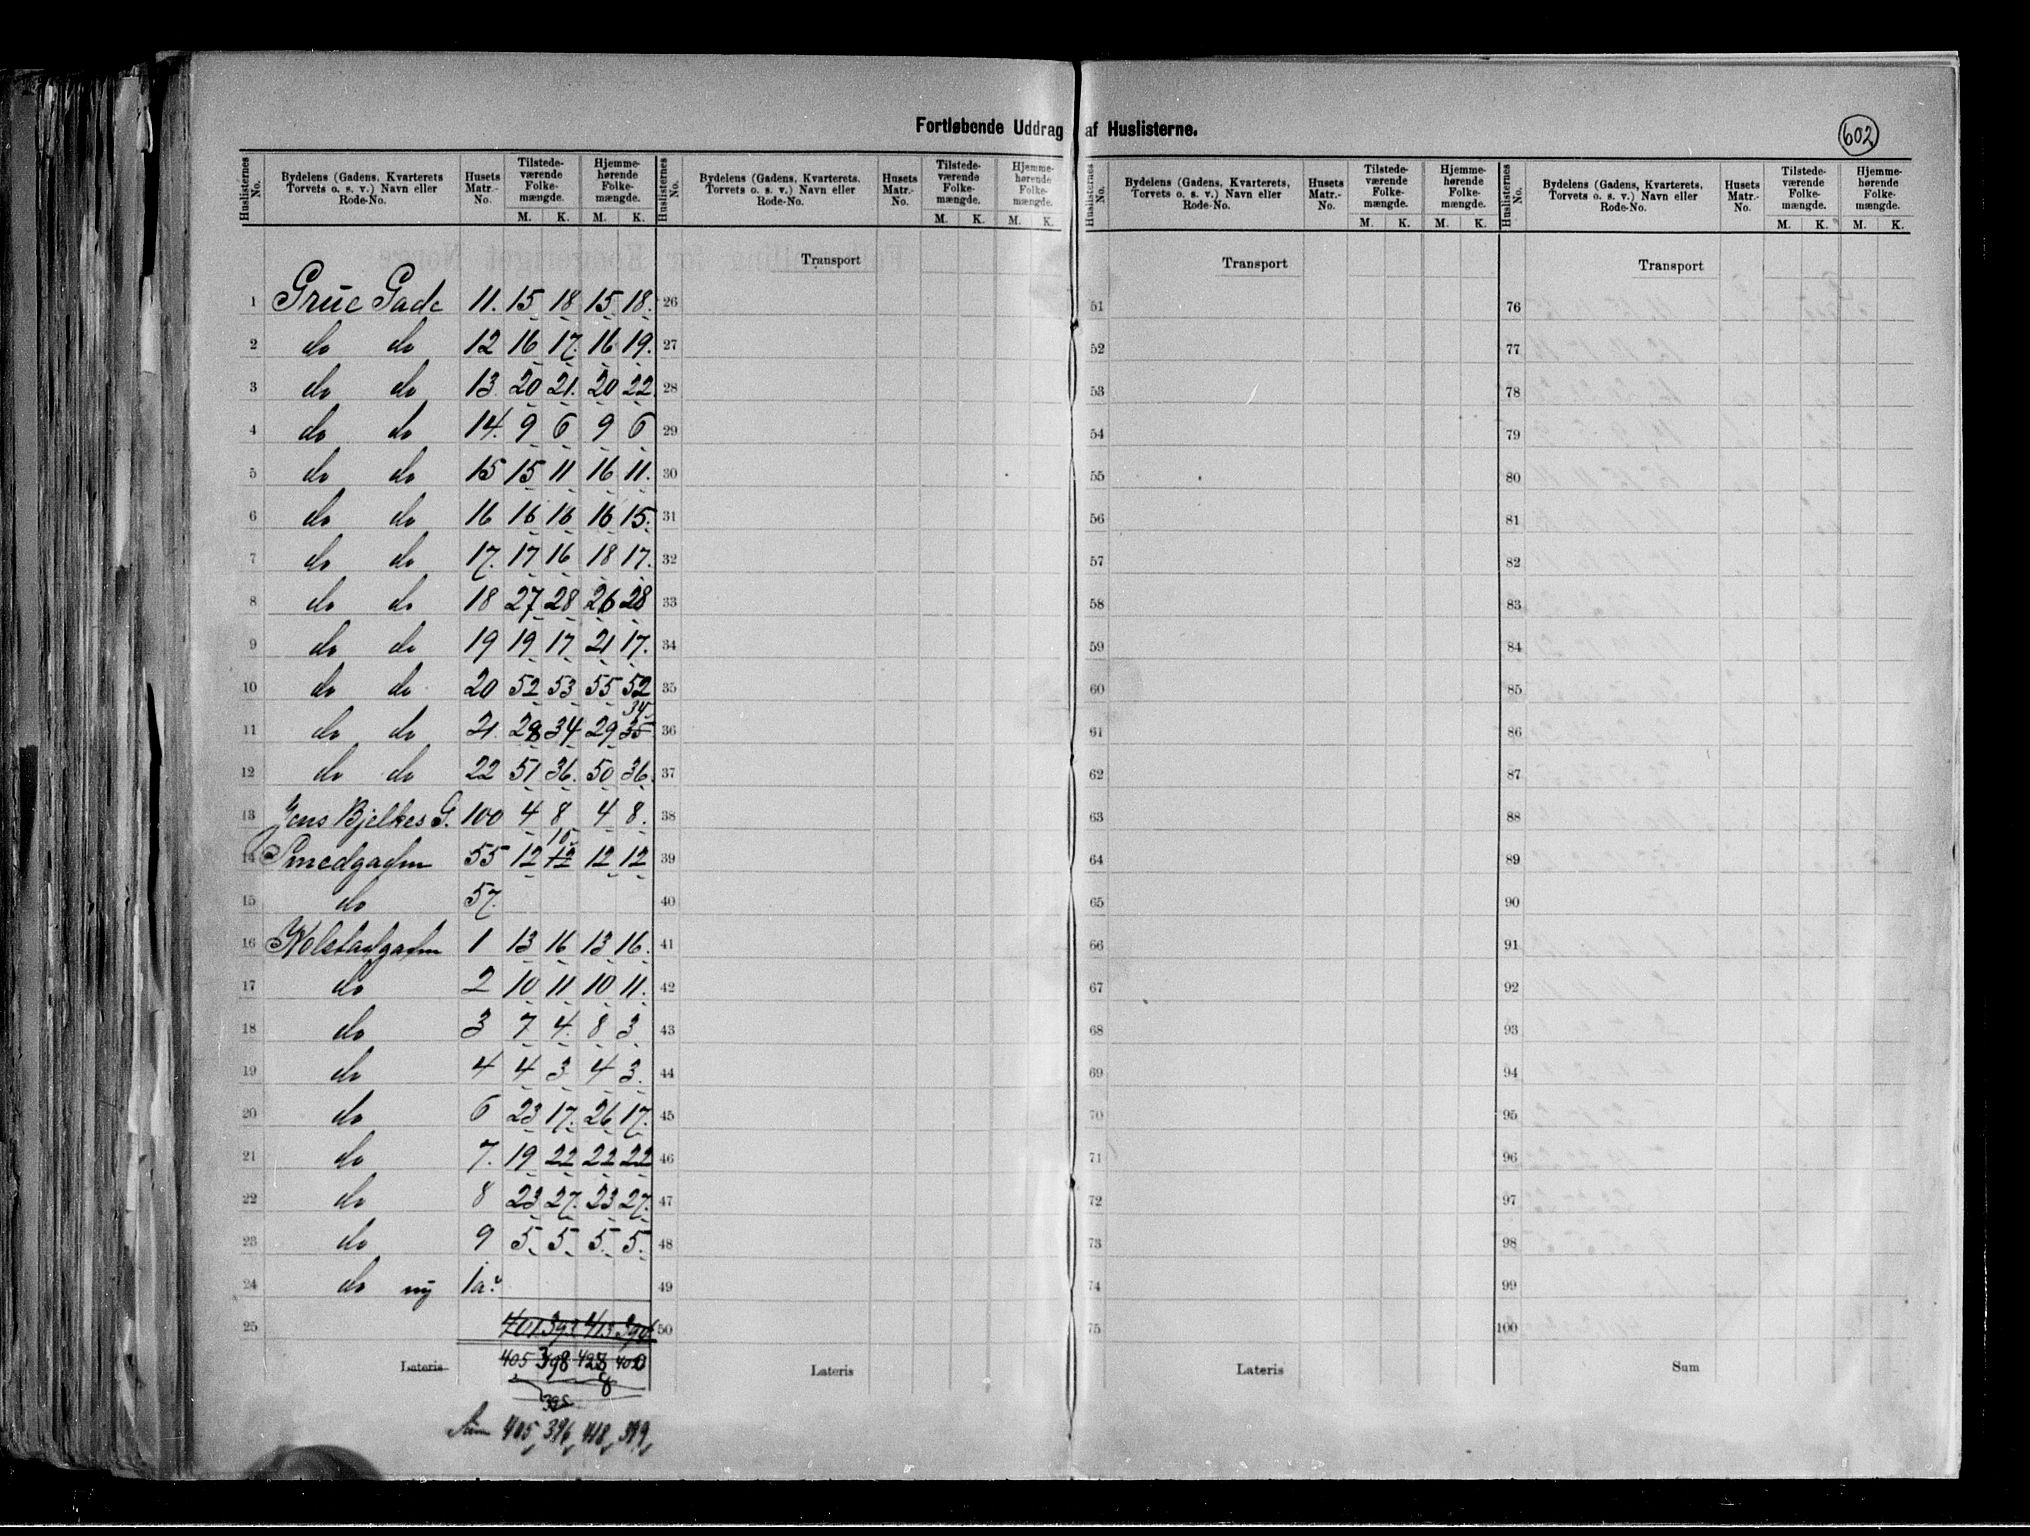 Fortløbende Uddrag af Huslisterne.
602
Huslisternes No. Bydelens (Gadens, Kvarterets Torvets o. s. v.) Navn eller Rode-No. Husets Matr.-No. Tilstede-værende Folke-mængde. M. K. Hjemme-hørende Folke-mængde. M. K.
Huslisternes No. Bydelens (Gadens, Kvarterets, Torvets o. s. v.) Navn eller Rode-No. Husets Matr.-No. Tilstede-værende Folke-mængde. M. K. Hjemme-hørende Folke-mængde. M. K.
Huslisternes No. Bydelens (Gadens, Kvarterets, Torvets o. s. v.) Navn eller Rode-No. Husets Matr.-No. Tilstede-værende Folke-mængde. M. K. Hjemme-hørende Folke-mængde. M. K.
Huslisternes No. Bydelens (Gadens, Kvarterets, Torvets o. s. v.) Navn eller Rode-No. Husets Matr.-No. Tilstede-værende Folke-mængde. M. K. Hjemme-hørende Folke-mængde. M. K.
Transport Transport Transport
1 Grue Gade 11. 15 18 15 18. 26 51 76
2 do do 12 16 17. 16 19. 27 52 77
3 do do 13. 20 21. 20 22 28 53 78
4 do do 14. 9 6 9 6 29 54 79
5 do do 15 15 11 16 11. 30 55 80
6 do do 16 16 16 16 15. 31 56 81
7 do do 17. 17 16 18 17. 32 57 82
8 do do 18 27 28 26 28 33 58 83
9 do do 19 19 17 21 17. 34 59 84
10 do do 20 52 53 55 52 35 60 85
34
11 do do 21. 28 34 29 35 36 61 86
12 do do 22 51 36. 50 36. 37 62 87
13 Jens Bjelkes G. 100 4 8 4 8. 38 63 88
10
14 Smedgaden 55 12 12 12 12 39 64 89
15 do 57. 40 65 90
16 Kolstadgaden 1 13 16 13 16. 41 66 91
17 do 2 10 11 10 11. 42 67 92
18 do 3 7 4. 8 3 43 68 93
19 do 4 4 3 4 3. 44 69 94
20 do 6 23 17. 26 17. 45 70 95
21 do 7. 19 22 22 22 46 71 96
22 do 8 23 27. 23 27. 47 72 97
23 do 9 5. 5 5. 5. 48 73 98
24 do ny 1a. 49 74 99
25 50 75 100
Lateris 405 398 428 400 Lateris Lateris Sum
8
395
Sum 405, 396, 418, 399,